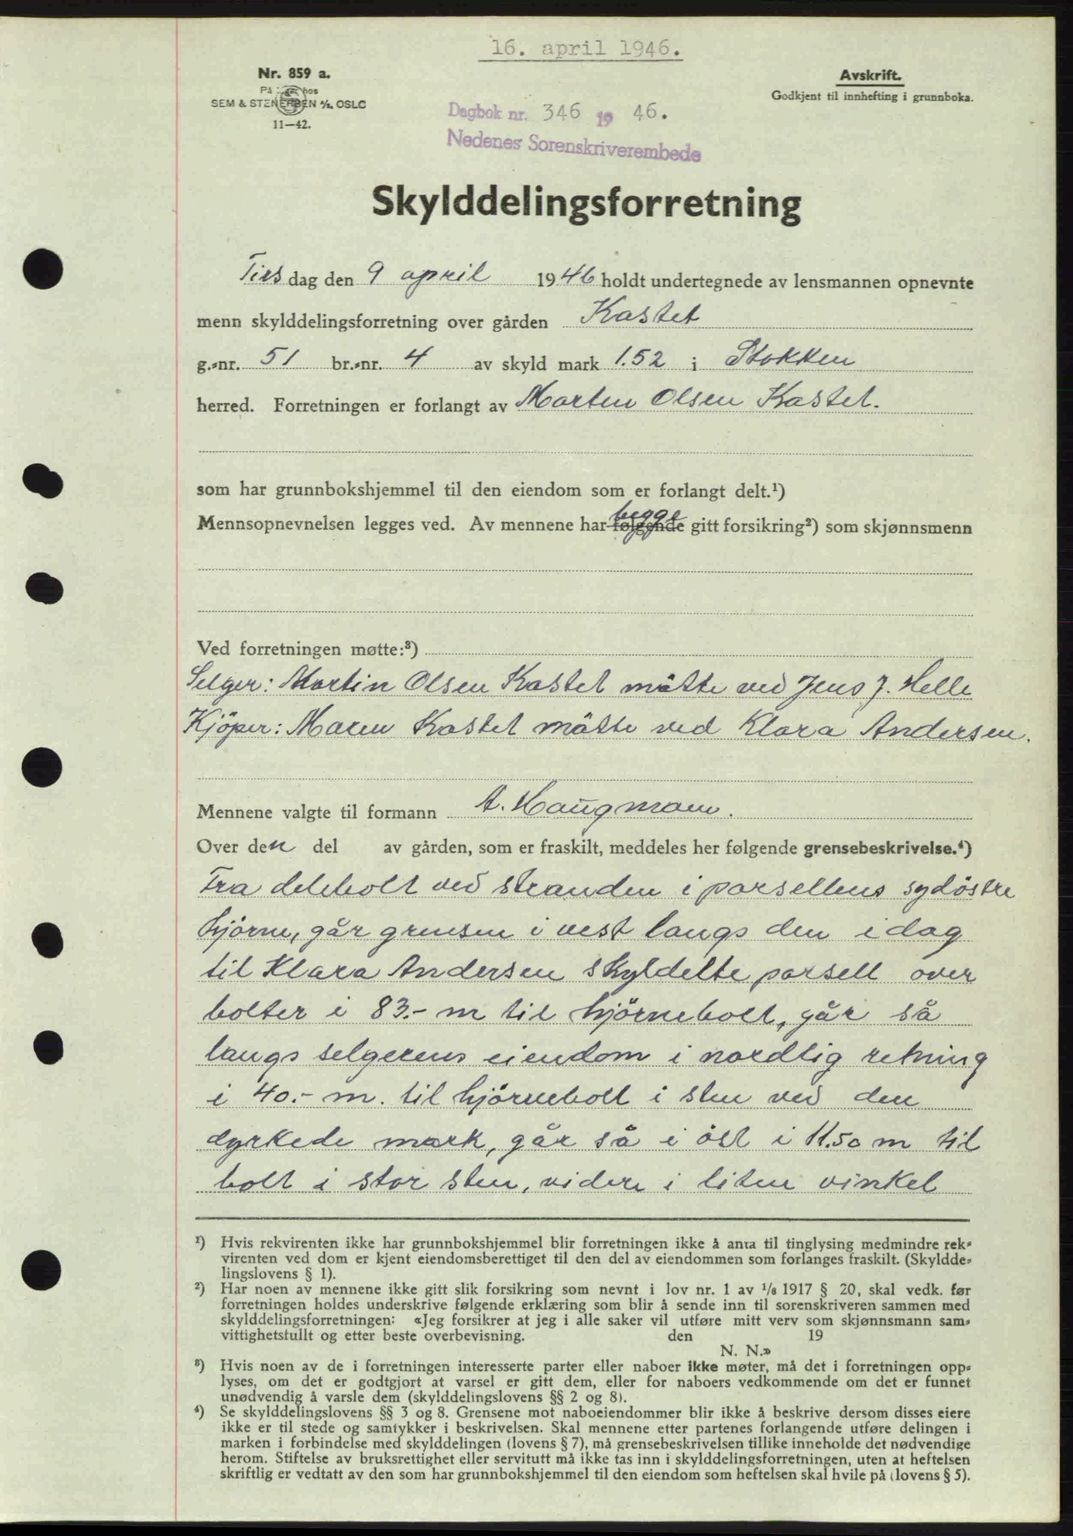 16. april 1946.
Nr. 859 a.
Avskrift.
På hos
SEM & STENERSEN A/S. OSLO
Godkjent til innhefting i grunnboka.
11—42.
Dagbok nr. 346 19 46.
Nedenes Sorenskriverembede
Skylddelingsforretning
Tirsdag den 9 april 1946 holdt undertegnede av lensmannen opnevnte
menn skylddelingsforretning over gården Kastet
g.-nr. 51 br.-nr. 4 av skyld mark 1.52 i Stokken
herred. Forretningen er forlangt av Morten Olsen Kastet.
som har grunnbokshjemmel til den eiendom som er forlangt delt.¹)
begge
Mennsopnevnelsen legges ved. Av mennene har følgende gitt forsikring²) som skjønnsmenn
Ved forretningen møtte:³)
Selger: Martin Olsen Kastet møtte ved Jens J. Helle
Kjöper: Maren Kastet mötte ved Klara Andersen.
Mennene valgte til formann A. Haugmann.
Over den del av gården, som er fraskilt, meddeles her følgende grensebeskrivelse.⁴)
Fra delebolt ved stranden i parsellens sydöstre
hjörne, går grensen i vest langs den i dag
til Klara Andersen skyldelte parsell over
bolter i 83.- m til hjörnebolt, går så
langs selgerens eiendom i nordlig retning
i 40.- m. til hjörnebolt i sten ved den
dyrkede mark, går så i öst i 11.50 m til
bolt i stor sten, videre i liten vinkel
¹) Hvis rekvirenten ikke har grunnbokshjemmel blir forretningen ikke å anta til tinglysing medmindre rek-
virenten ved dom er kjent eiendomsberettiget til den del av eiendommen som forlanges fraskilt. (Skyldde-
lingslovens § 1).
²) Har noen av mennene ikke gitt slik forsikring som nevnt i lov nr. 1 av 1/8 1917 § 20, skal vedk. før
forretningen holdes underskrive følgende erklæring som blir å sende inn til sorenskriveren sammen med
skylddelingsforretningen: «Jeg forsikrer at jeg i alle saker vil utføre mitt verv som skjønnsmann sam-
vittighetstullt og etter beste overbevisning. den 19
N. N.»
³) Hvis noen av de i forretningen interesserte parter eller naboer ikke møter, må det i forretningen opp-
lyses, om det er godtgjort at varsel er gitt dem, eller for naboers vedkommende om det er funnet
unødvendig å varsle dem (skylddelingslovens §§ 2 og 8).
⁴) Se skylddelingslovens §§ 3 og 8. Grensene mot naboeiendommer blir ikke å beskrive dersom disses eiere
ikke er til stede og samtykker i beskrivelsen. Skal mennene etter partenes forlangende utføre delingen i
marken i forbindelse med skylddelingen (lovens § 7), må grensebeskrivelsen tillike inneholde det nødvendige
herom. Stiftelse av bruksrettighet eller servitutt må ikke tas inn i skylddelingsforretningen, uten at heftelsen
skriftlig er vedtatt av den som har grunnbokshjemmel til den eiendom som heftelsen skal hvile på (lovens § 5).